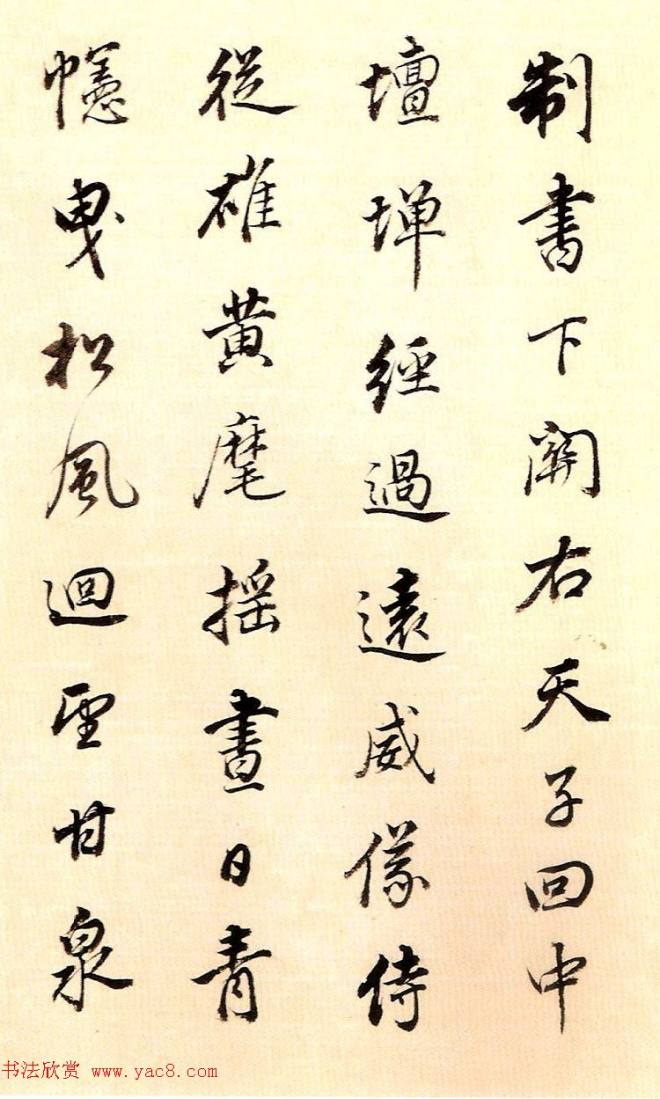 制書下關右天子回中
壇墠經過遠威儀侍
從雄黄麾摇晝日青
幰曳松風迴望甘泉
书法欣赏 www.yac8.com